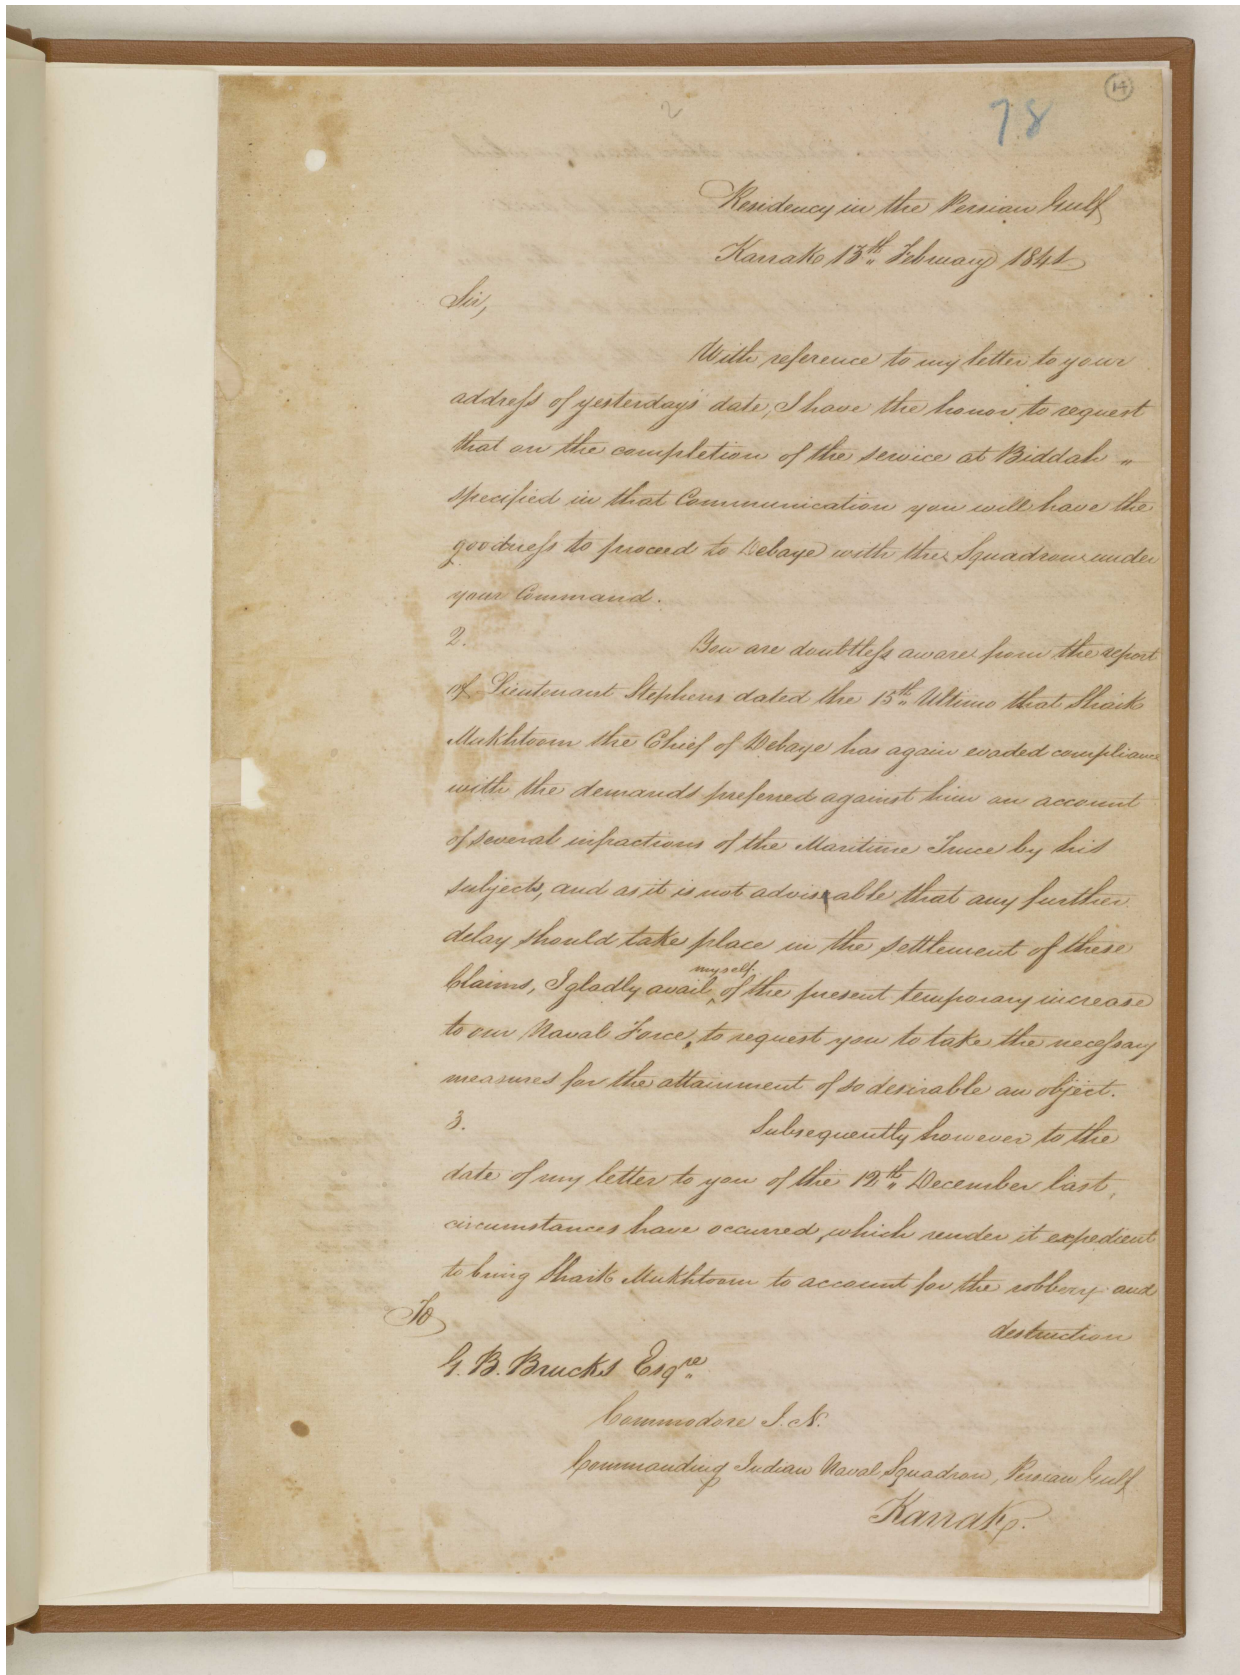 2
78
14
Residency in the Persian Gulf
Karrak 13th February 1841
Sir,
With reference to my letter to your
addreſs of yesterday's date, I have the honor to request
that on the completion of the service at Biddah "
specified in that Communication you will have the
goodneſs to proceed to Debaye with the Squadron under
your Command.
2. You are doubtleſs aware from the report
of Lieutenant Stephens dated the 15th Ultimo that Shaik
Mukhtoom the Chief of Debaye has again evaded compliance
with the demands preferred against him on account
of several infractions of the Maritime Truce by his
subjects, and as it is not advisable that any further
delay should take place in the settlement of these
Claims, I gladly avail myself of the present temporary increase
to our Naval Force, to request you to take the neceſsary
measures for the attainment of so desirable an object.
3. Subsequently however to the
date of my letter to you of the 12th December last,
circumstances have occurred, which render it expedient
to bring Shaik Mukhtoom to account for the robbery and
destruction
To
G. B. Brucks Esqre
Commodore I. N.
Commanding Indian Naval Squadron, Persian Gulf
Karrak.